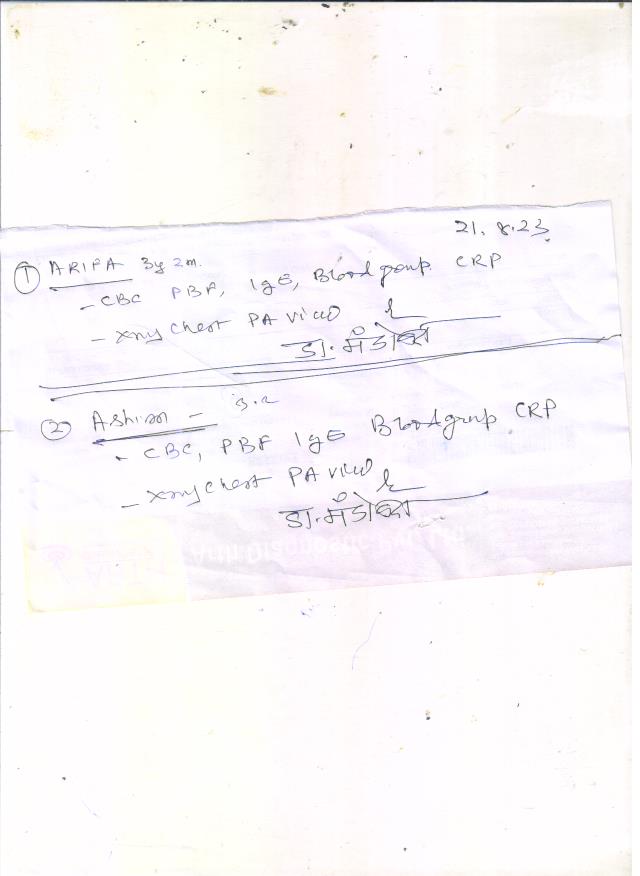 21.8.23
① ARIFA 3y 2m.
- CBC PBF, IgE, Blood group. CRP
- Xray Chest PA View
डा. मंडोवरा
② Ashian - 3.2
- CBC, PBF IgE Blood group CRP
- Xray Chest PA View
डा. मंडोवरा